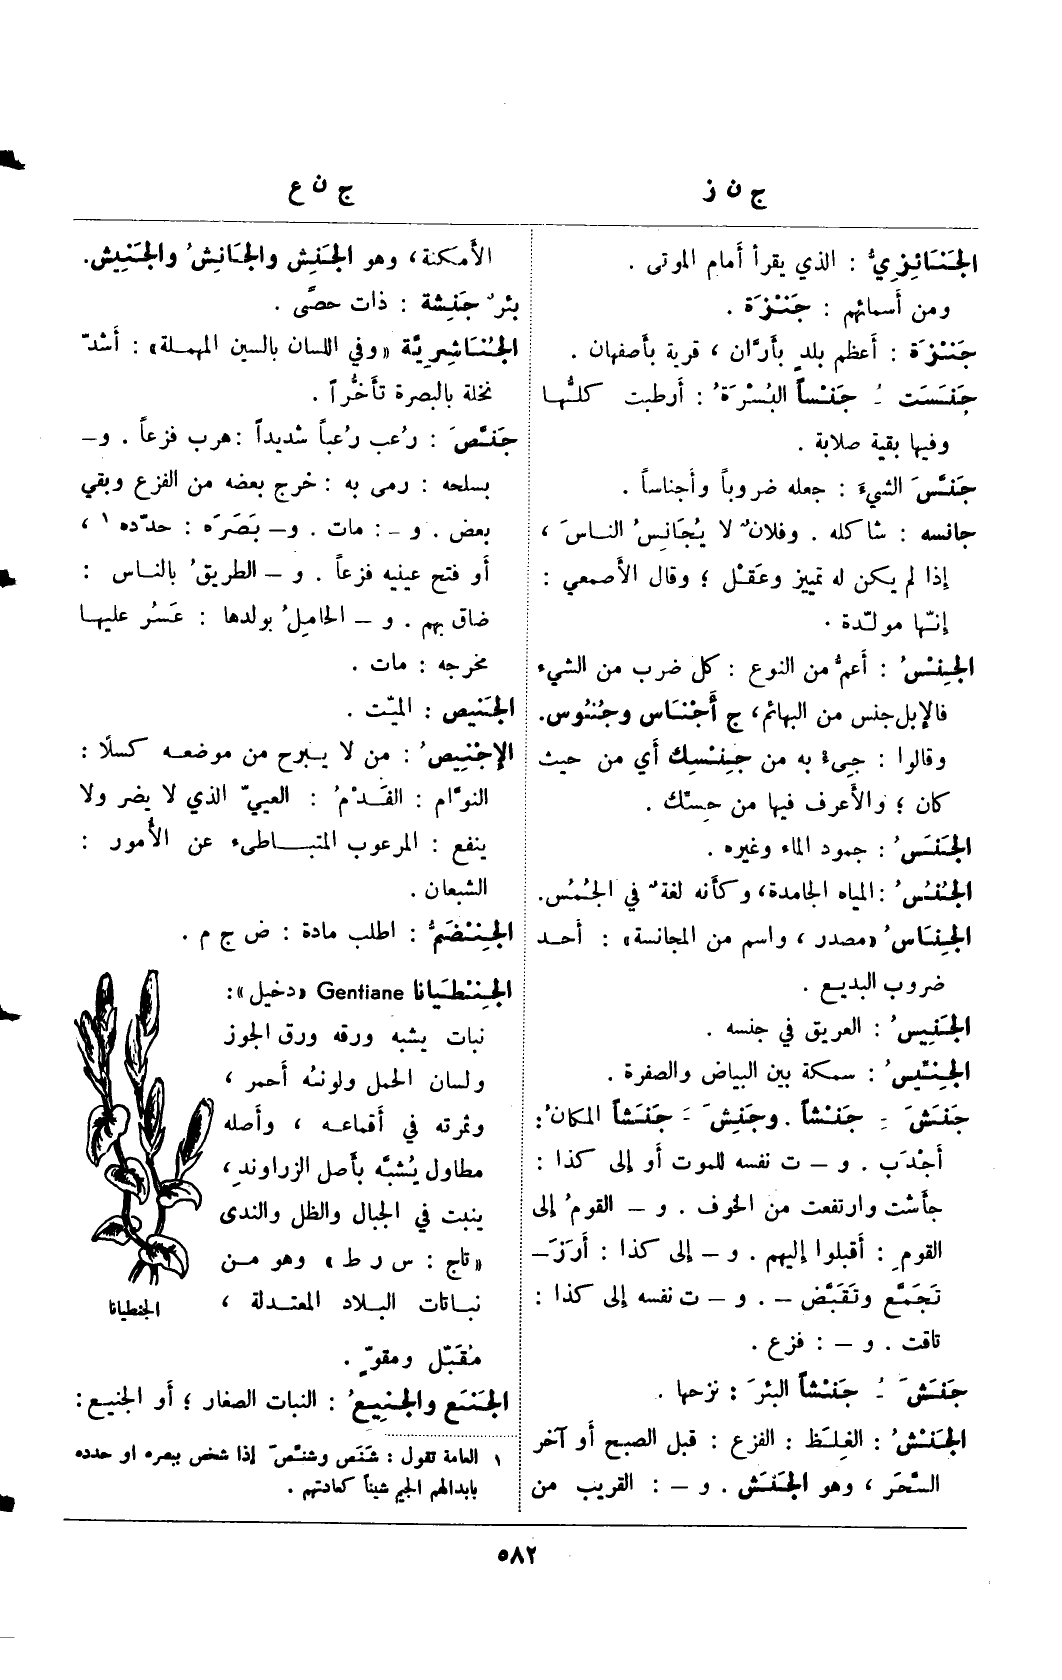 ج ن ز
ج ن ع
الجَنَائِزِيُّ : الذي يقرأ أمام الموتى .
ومن أسمائهم : جَنْزَة .
جَنْزَة : أعظم بلدٍ بأرَّان ، قرية بأصفهان .
جَنَسَت ـُ جَنْساً البُسْرَةُ : أرطبت كلُّها
وفيها بقية صلابة .
جَنَّسَ الشيءَ : جعله ضروباً وأجناساً .
جانسه : شاكله . وفلانٌ لا يُجَانِسُ الناسَ ،
إذا لم يكن له تمييز وعَقْل ؛ وقال الأصمعي :
إنّها مولّدة .
الجِنْسُ : أعمُّ من النوع : كل ضرب من الشيء
فالإبل جنس من البهائم، ج أَجْنَاس وجُنُوس.
وقالوا : جِيءْ به من جِنْسِك أي من حيث
كان ؛ والأعرف فيها من حِسّك .
الجَنَسُ : جمود الماء وغيره .
الجُنُسُ : المياه الجامدة، وكأنه لغةٌ في الجُمُس.
الجِنَاسُ «مصدر ، واسم من المجانسة» : أحد
ضروب البديع .
الجَنِيسُ : العريق في جنسه .
الجِنِّيسُ : سمكة بين البياض والصفرة .
جَنَشَ ـِ جَنْشاً . وجَنِشَ ـَ جَنَشاً المكانُ :
أجْدَب . و – ت نفسه للموت أو إلى كذا :
جأشت وارتفعت من الخوف . و – القومُ إلى
القومِ : أقبلوا إليهم . و – إلى كذا : أرَزَ–
تَجَمَّع وتَقَبَّض – . و – ت نفسه إلى كذا :
تاقت . و – : فزع .
جَنَشَ ـُ جَنْشاً البئرَ : نزحها .
الجَنْشُ : الغِلَظ : الفزع : قبل الصبح أو آخر
السَّحَر ، وهو الجَنَشُ . و – : القريب من
الأمكنة، وهو الجَنِش والجَانِشُ والجَنِيش.
بئرٌ جَنِشة : ذات حصًى .
الجُنَاشِريّة «وفي اللسان بالسين المهملة» : أشدّ
نخلة بالبصرة تأخُّراً .
جَنَّصَ : رُعب رُعباً شديداً : هرب فزعاً . و–
بسلحه : رمى به : خرج بعضه من الفزع وبقي
بعض . و – : مات . و– بَصَرَه : حدّده ١ ،
أو فتح عينيه فزعاً . و – الطريقُ بالناس :
ضاق بهم . و – الحاملُ بولدها : عَسُر عليها
مخرجه : مات .
الجَنِيص : الميّت .
الإجْنِيصُ : من لا يبرح من موضعه كسلًا :
النوَّام : الفَدْمُ : العييّ الذي لا يضر ولا
ينفع : المرعوب المتباطىء عن الأمور :
الشبعان .
الجِنْضَمُّ : اطلب مادة : ض ج م .
الجِنْطَيانا Gentiane «دخيل» :
نبات يشبه ورقه ورق الجوز
ولسان الحمل ولونه أحمر ،
وثمرته في أقماعه ، وأصله
مطاول يُشبَّه بأصل الزراوندِ،
ينبت في الجبال والظل والندى
«تاج : س ر ط» وهو من
نباتات البلاد المعتدلة ،
مُقَبّل ومقوٍّ .
الجنطيانا
الجَنَع والجَنِيعُ : النبات الصغار ؛ أو الجنيع :
١ العامة تقول : شَنَص وشنّصَ إذا شخص ببصره او حدده
بابدالهم الجيم شيناً كعادتهم .
٥٨٢